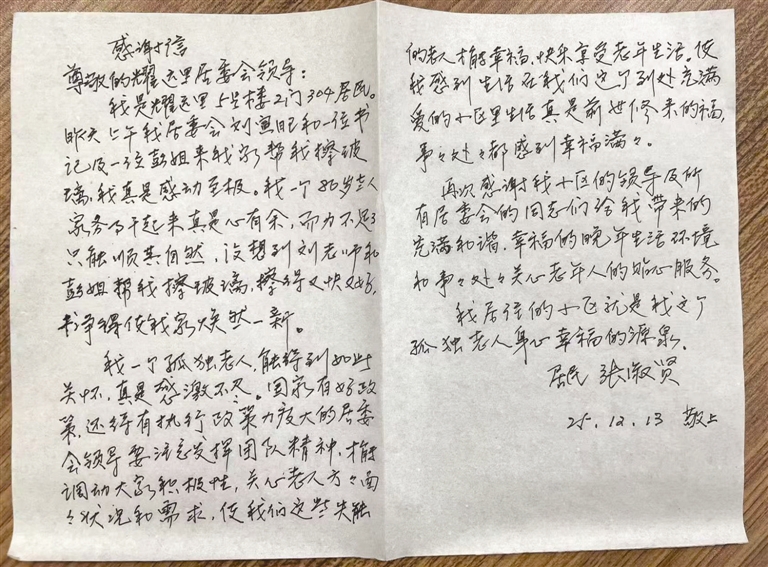 感谢信
尊敬的耀远里居委会领导：
我是耀远里5号楼2门304居民。
昨天上午我居委会刘寅旺和一位书
记及一位彭姐来我家帮我擦玻
璃，我真是感动至极。我一个80岁老人
家务了干起来真是心有余，而力不足了
只能顺其自然，没想到刘老师和
彭姐帮我擦玻璃，擦得又快又好，
干净得使我家焕然一新。
我一个孤独老人，能得到如此
关怀，真是感激不尽。国家有好政
策，还得有执行政策力度大的居委
会领导要注意发挥团队精神，才能
调动大家积极性，关心老人方々面
々状况和需求，使我们这些失能
的老人才能幸福，快乐享受老年生活。使
我感到生活在我们这个到处充满
爱的小区里生活真是前世修来的福，
事々处々都感到幸福满々。
再次感谢我小区的领导及所
有居委会的同志们给我带来的
充满和谐，幸福的晚年生活环境
和事々处々关心老年人的贴心服务。
我居住的小区就是我这个
孤独老人身心幸福的源泉。
居民 张淑贤
25.12.13 敬上